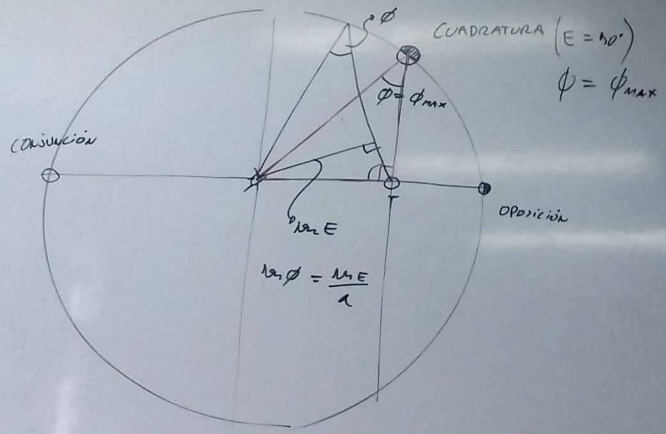 φ
CUADRATURA (E = 90°)
φ = φ MAX
φ = φ MAX
CONJUNCIÓN
T
OPOSICIÓN
sen E
sen φ = sen E / a